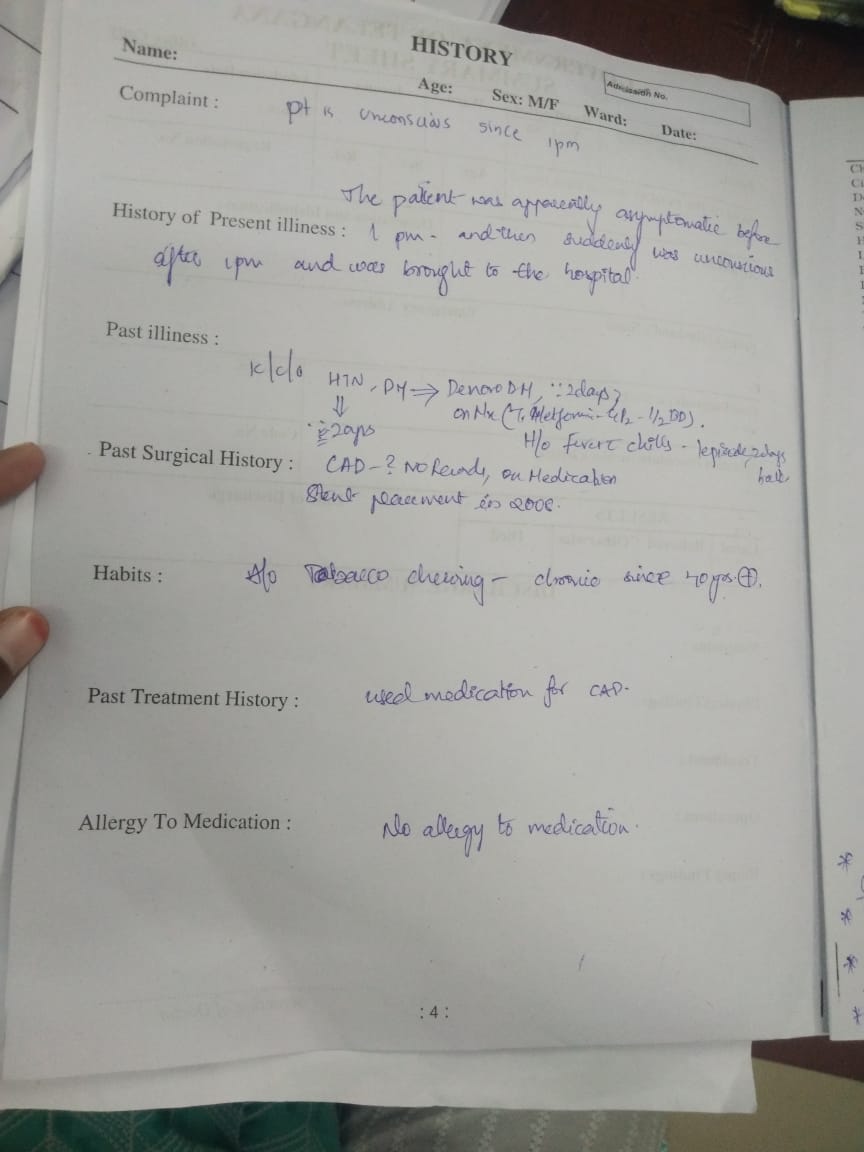 HISTORY
Admission No.
Name:
Age: Sex: M/F Ward: Date:
Complaint : pt is unconscious since 1pm
The patient was apparently asymptomatic before
History of Present illiness : 1 pm - and then suddenly was unconscious
after 1pm and was brought to the hospital.
Past illiness :
k/c/o HTN, DM ⇒ Denovo DM, ∵ 2days
⇓ on Rx (T. Metformin - - 1/2 BD).
H/o fever c chills - 1episode, 2days back
Past Surgical History : CAD - ? No Records, on Medication
Stent placement in
Habits : A/o Tobacco chewing - chronic since 40yrs ⊕.
Past Treatment History : used medication for CAD.
Allergy To Medication : No allergy to medication.
: 4 :